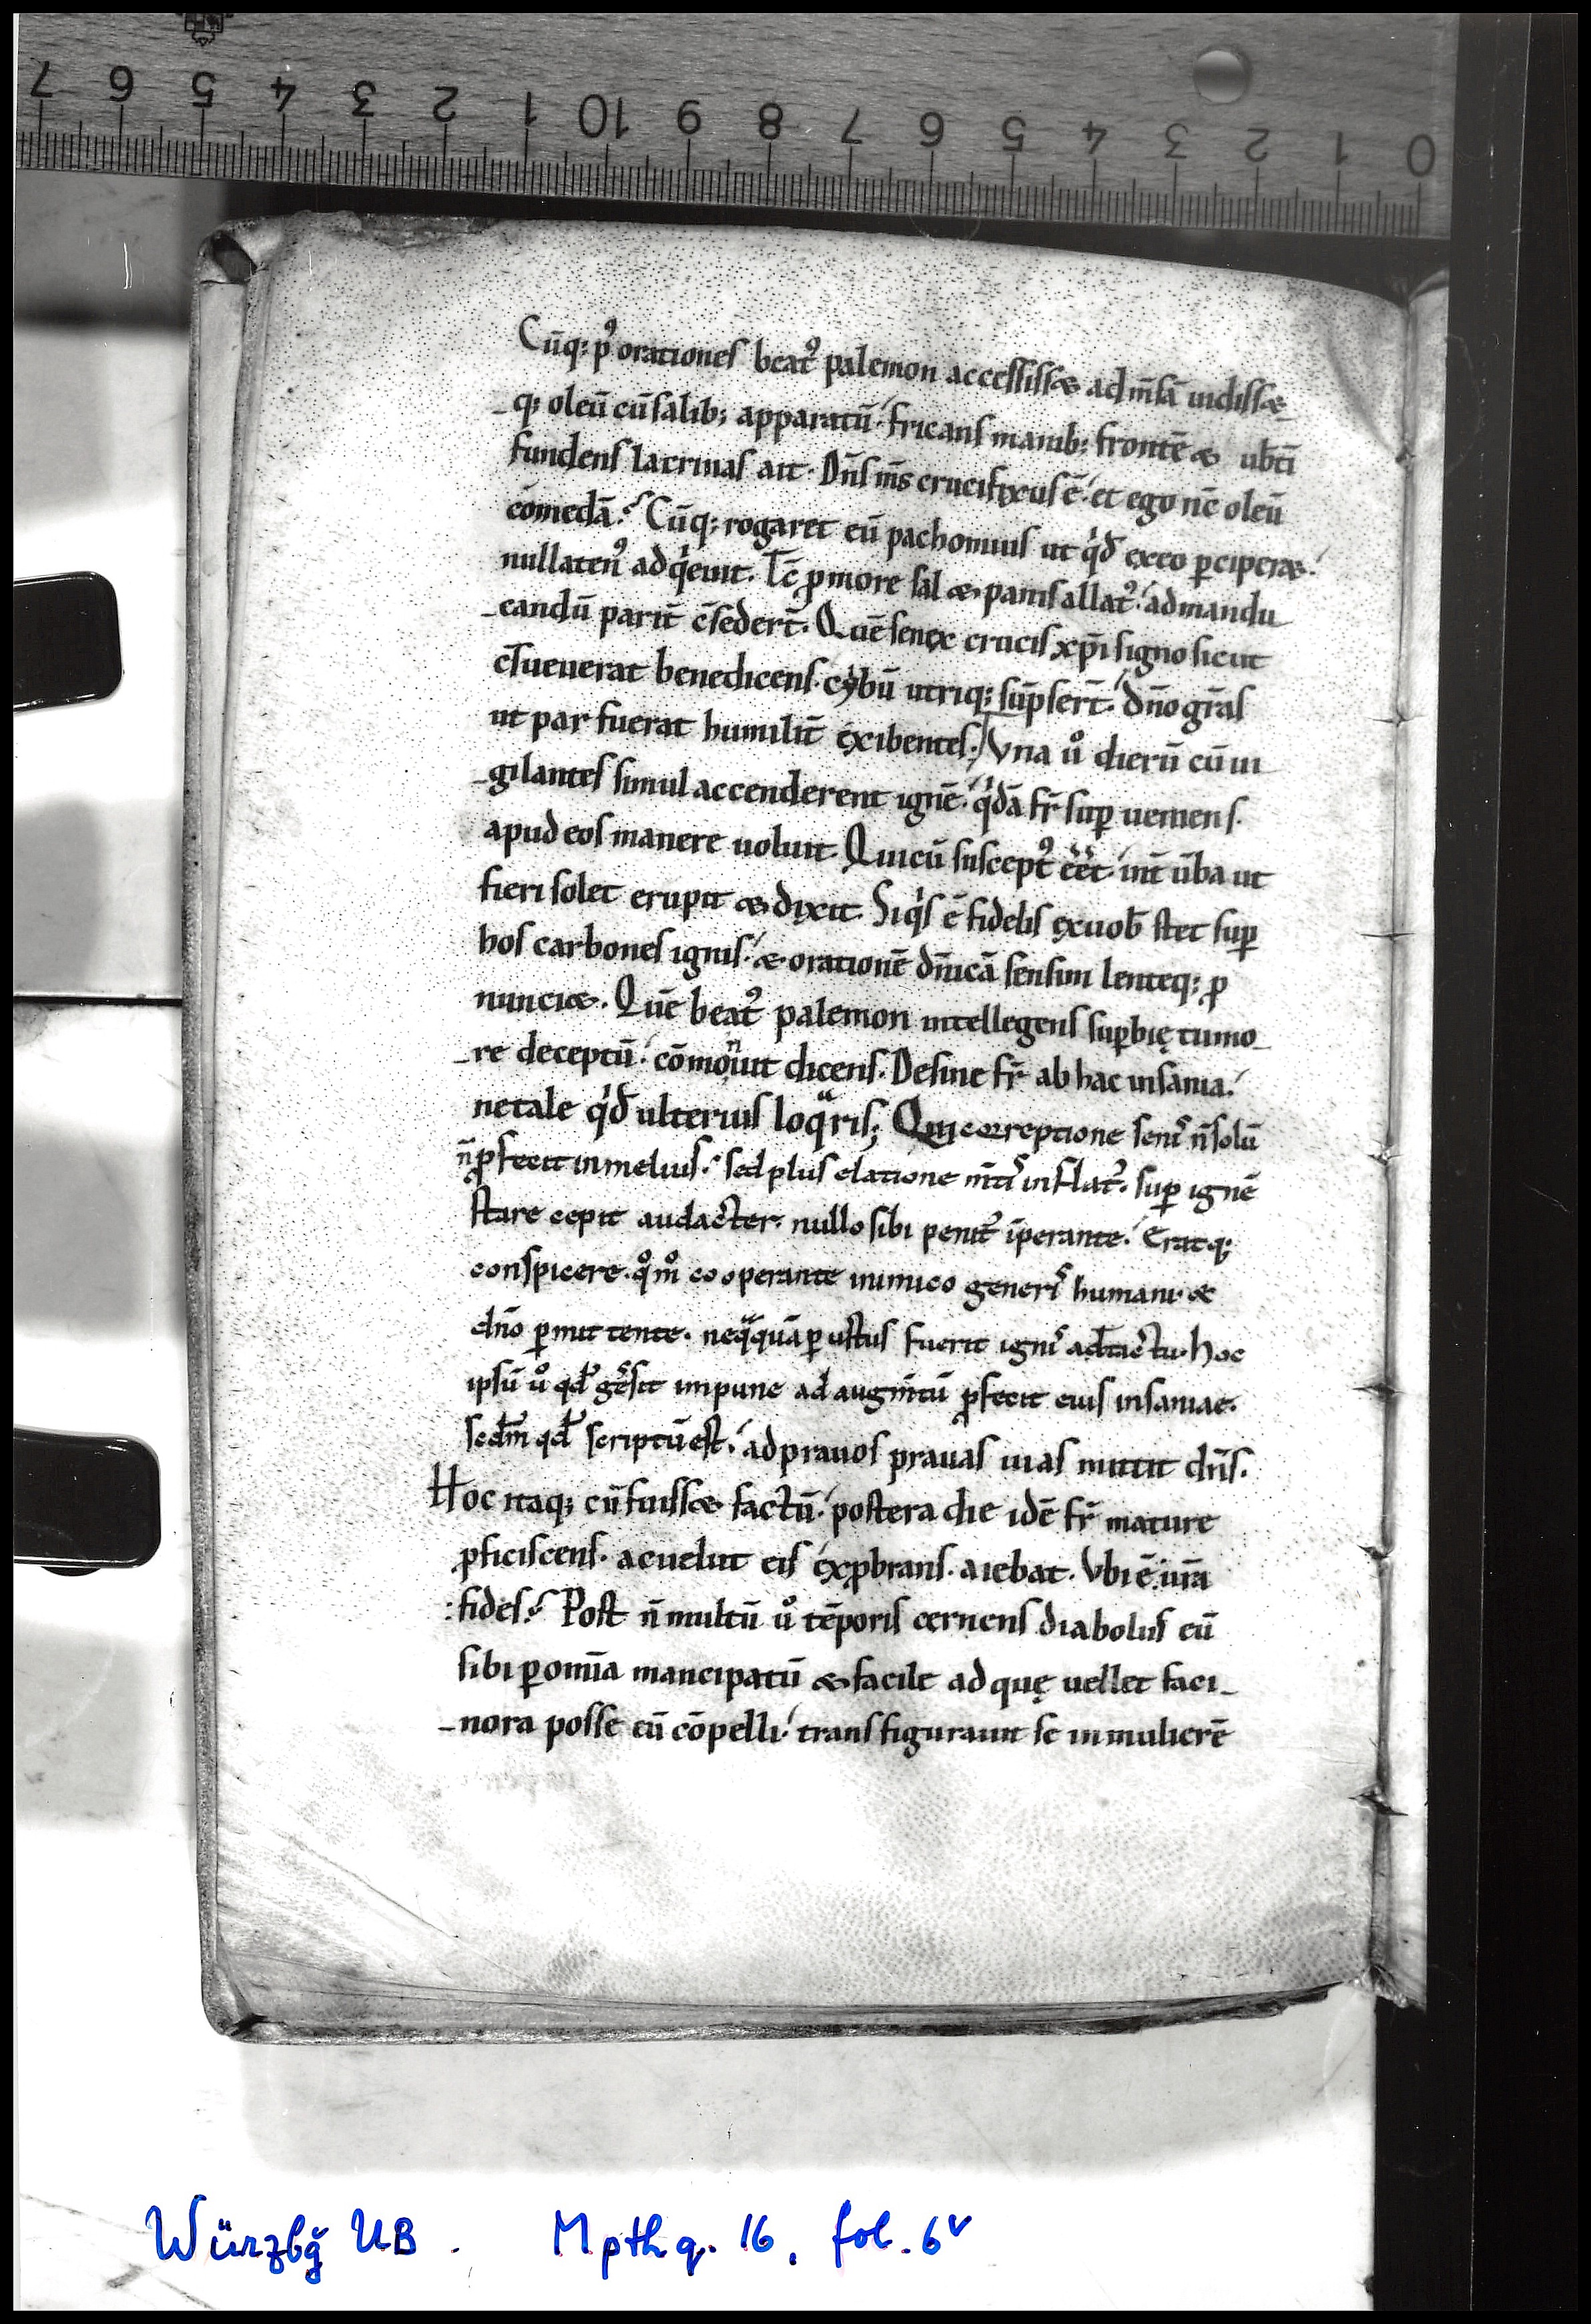 7 6 5 4 3 2 1 10 9 8 7 6 5 4 3 2 1 0
Cūq; pꝰ orationes beatꝰ palemon accessiss& ad m̄sā uidiss&
q; oleū cū salib; apparatū. fricans manib; frontē & ubt̄i
fundens lacrimas ait. Dn̄s m̄s crucifixus ē. et ego nc̄ oleū
cōmedā? Cūq; rogaret eū pachomius ut qͥd exeo p̲ciper&.
nullatenꝰ adqͥeuit. Tc̄ p̲more sal & panis allatꝰ. ad mandu
candū parit̄ c̄sedert̄. Quē senex crucis xp̄i signo sicut
c̄sueuerat benedicens. cybū utriq; sūpsert̄. dn̄o gr̄as
ut par fuerat humilit̄ exibentes. Vna uͦ dierū cū ui
gilantes simul accenderent ignē. qͥdā fr̄ sup̲ueniens.
apud eos manere uoluit. Qui cū susceptꝰ eēt. int̄ ūba ut
fieri solet erupit & dixit. Siqͥs ē fidelis ex uob̄ stet sup̲
hos carbones ignis. & orationē dn̄icā sensim lenteq; ꝓ
nunci&. Quē beatꝰ palemon intellegens sup̲bię tumo
re deceptū. cōmonuit dicens. Desine fr̄ ab hac insania.
ne tale qͥd ulterius loqͣris; Qui correptione senis n̄ solū
n̄ ꝓfecit in melius. sed plus elatione m̄tis inflatꝰ. sup̲ ignē
stare cepit audacter. nullo sibi penit̄ īperante. Eratq;
conspicere. qͦmͦ cooperante inimico generis humani &
dn̄o p̲mittente. neqͣquā p̲ustus fuerit ignis adtactu. Hoc
ipsū uͦ qd̄ gessit impune ad augm̄tū ꝓfecit eius insaniae.
sed̄m qd̄ scriptū est. ad prauos prauas uias mittit dn̄s.
Hoc itaq; cū fuiss& factū. postera die idē fr̄ mature
ꝓficiscens. ac uelut eis exꝓbrans. aiebat. Vbi ē ur̄a
fides? Post n̄ multū uͦ tēporis cernens diabolus eū
sibi p̲ omīa mancipatū & facile ad quę uellet faci
nora posse eū cōpelli. transfigurauit se in mulierē
Würzbg̃ UB. M pth q. 16, fol. 6ᵛ